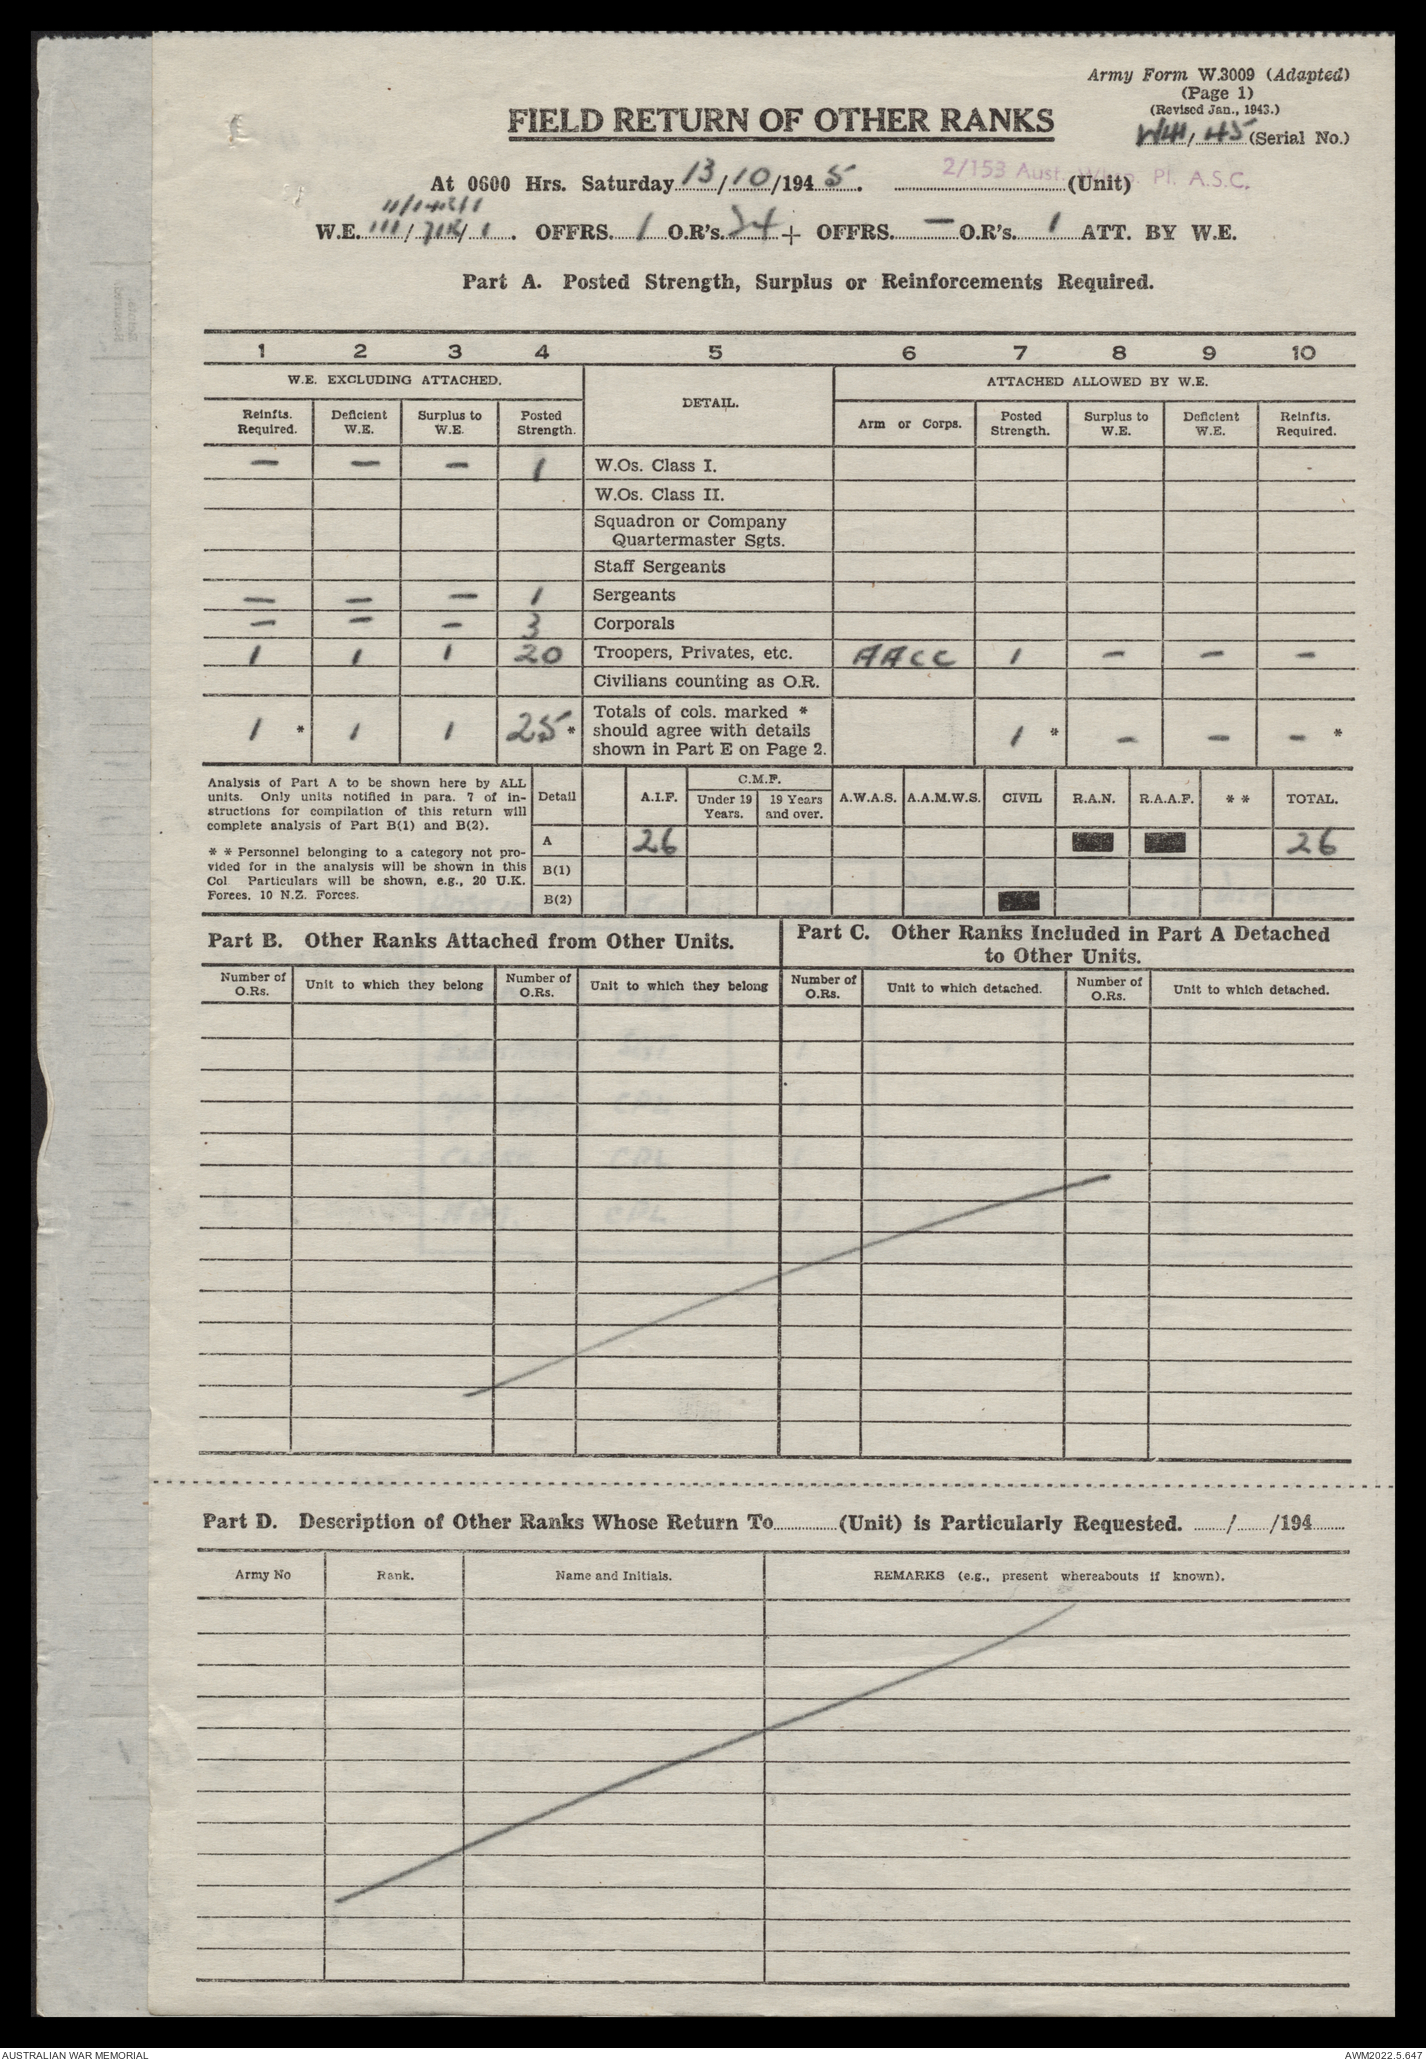 Army Form W.3009 (Adapted)
(Page 1)
(Revised Jan., 1943.)
/ 45 (Serial No.)
FIELD RETURN OF OTHER RANKS
At 0600 Hrs. Saturday 13/10/1945. 2/153 Aust. Pl. A.S.C. (Unit)
W.E. 111/ / 1. OFFRS. 1 O.R's. 24 + OFFRS. — O.R's. 1 ATT. BY W.E.
Part A. Posted Strength, Surplus or Reinforcements Required.
1 2 3 4 5 6 7 8 9 10
W.E. EXCLUDING ATTACHED. DETAIL. ATTACHED ALLOWED BY W.E.
Reinfts. Required. Deficient W.E. Surplus to W.E. Posted Strength. Arm or Corps. Posted Strength. Surplus to W.E. Deficient W.E. Reinfts. Required.
— — — 1 W.Os. Class I.
W.Os. Class II.
Squadron or Company
Quartermaster Sgts.
Staff Sergeants
— — — 1 Sergeants
— — — 3 Corporals
1 1 1 20 Troopers, Privates, etc. AACC 1 — — —
Civilians counting as O.R.
1 * 1 1 25 * Totals of cols. marked * should agree with details shown in Part E on Page 2. 1 * — — — *
Analysis of Part A to be shown here by ALL
units. Only units notified in para. 7 of in-
structions for compilation of this return will
complete analysis of Part B(1) and B(2).
* * Personnel belonging to a category not pro-
vided for in the analysis will be shown in this
Col Particulars will be shown, e.g., 20 U.K.
Forces, 10 N.Z. Forces.
Detail A.I.F. C.M.F. Under 19 Years. 19 Years and over. A.W.A.S. A.A.M.W.S. CIVIL R.A.N. R.A.A.F. * * TOTAL.
A 26 26
B(1)
B(2)
Part B. Other Ranks Attached from Other Units.
Part C. Other Ranks Included in Part A Detached
to Other Units.
Number of O.Rs. Unit to which they belong Number of O.Rs. Unit to which they belong Number of O.Rs. Unit to which detached. Number of O.Rs. Unit to which detached.
Part D. Description of Other Ranks Whose Return To (Unit) is Particularly Requested. / /194
Army No Rank. Name and Initials. REMARKS (e.g., present whereabouts if known).
AUSTRALIAN WAR MEMORIAL AWM2022.5.647